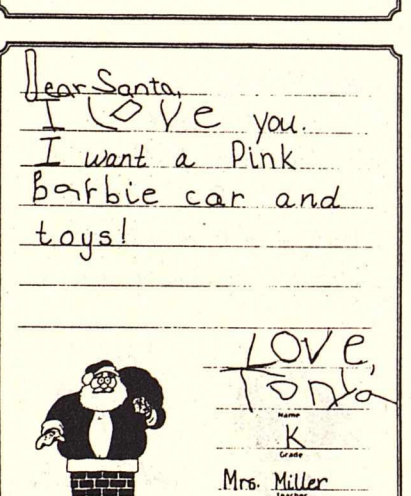 Dear Santa,
I LOVE you.
I want a Pink
Barbie car and
toys!
LOVE,
Tonya
Name
K
Grade
Mrs. Miller
Teacher